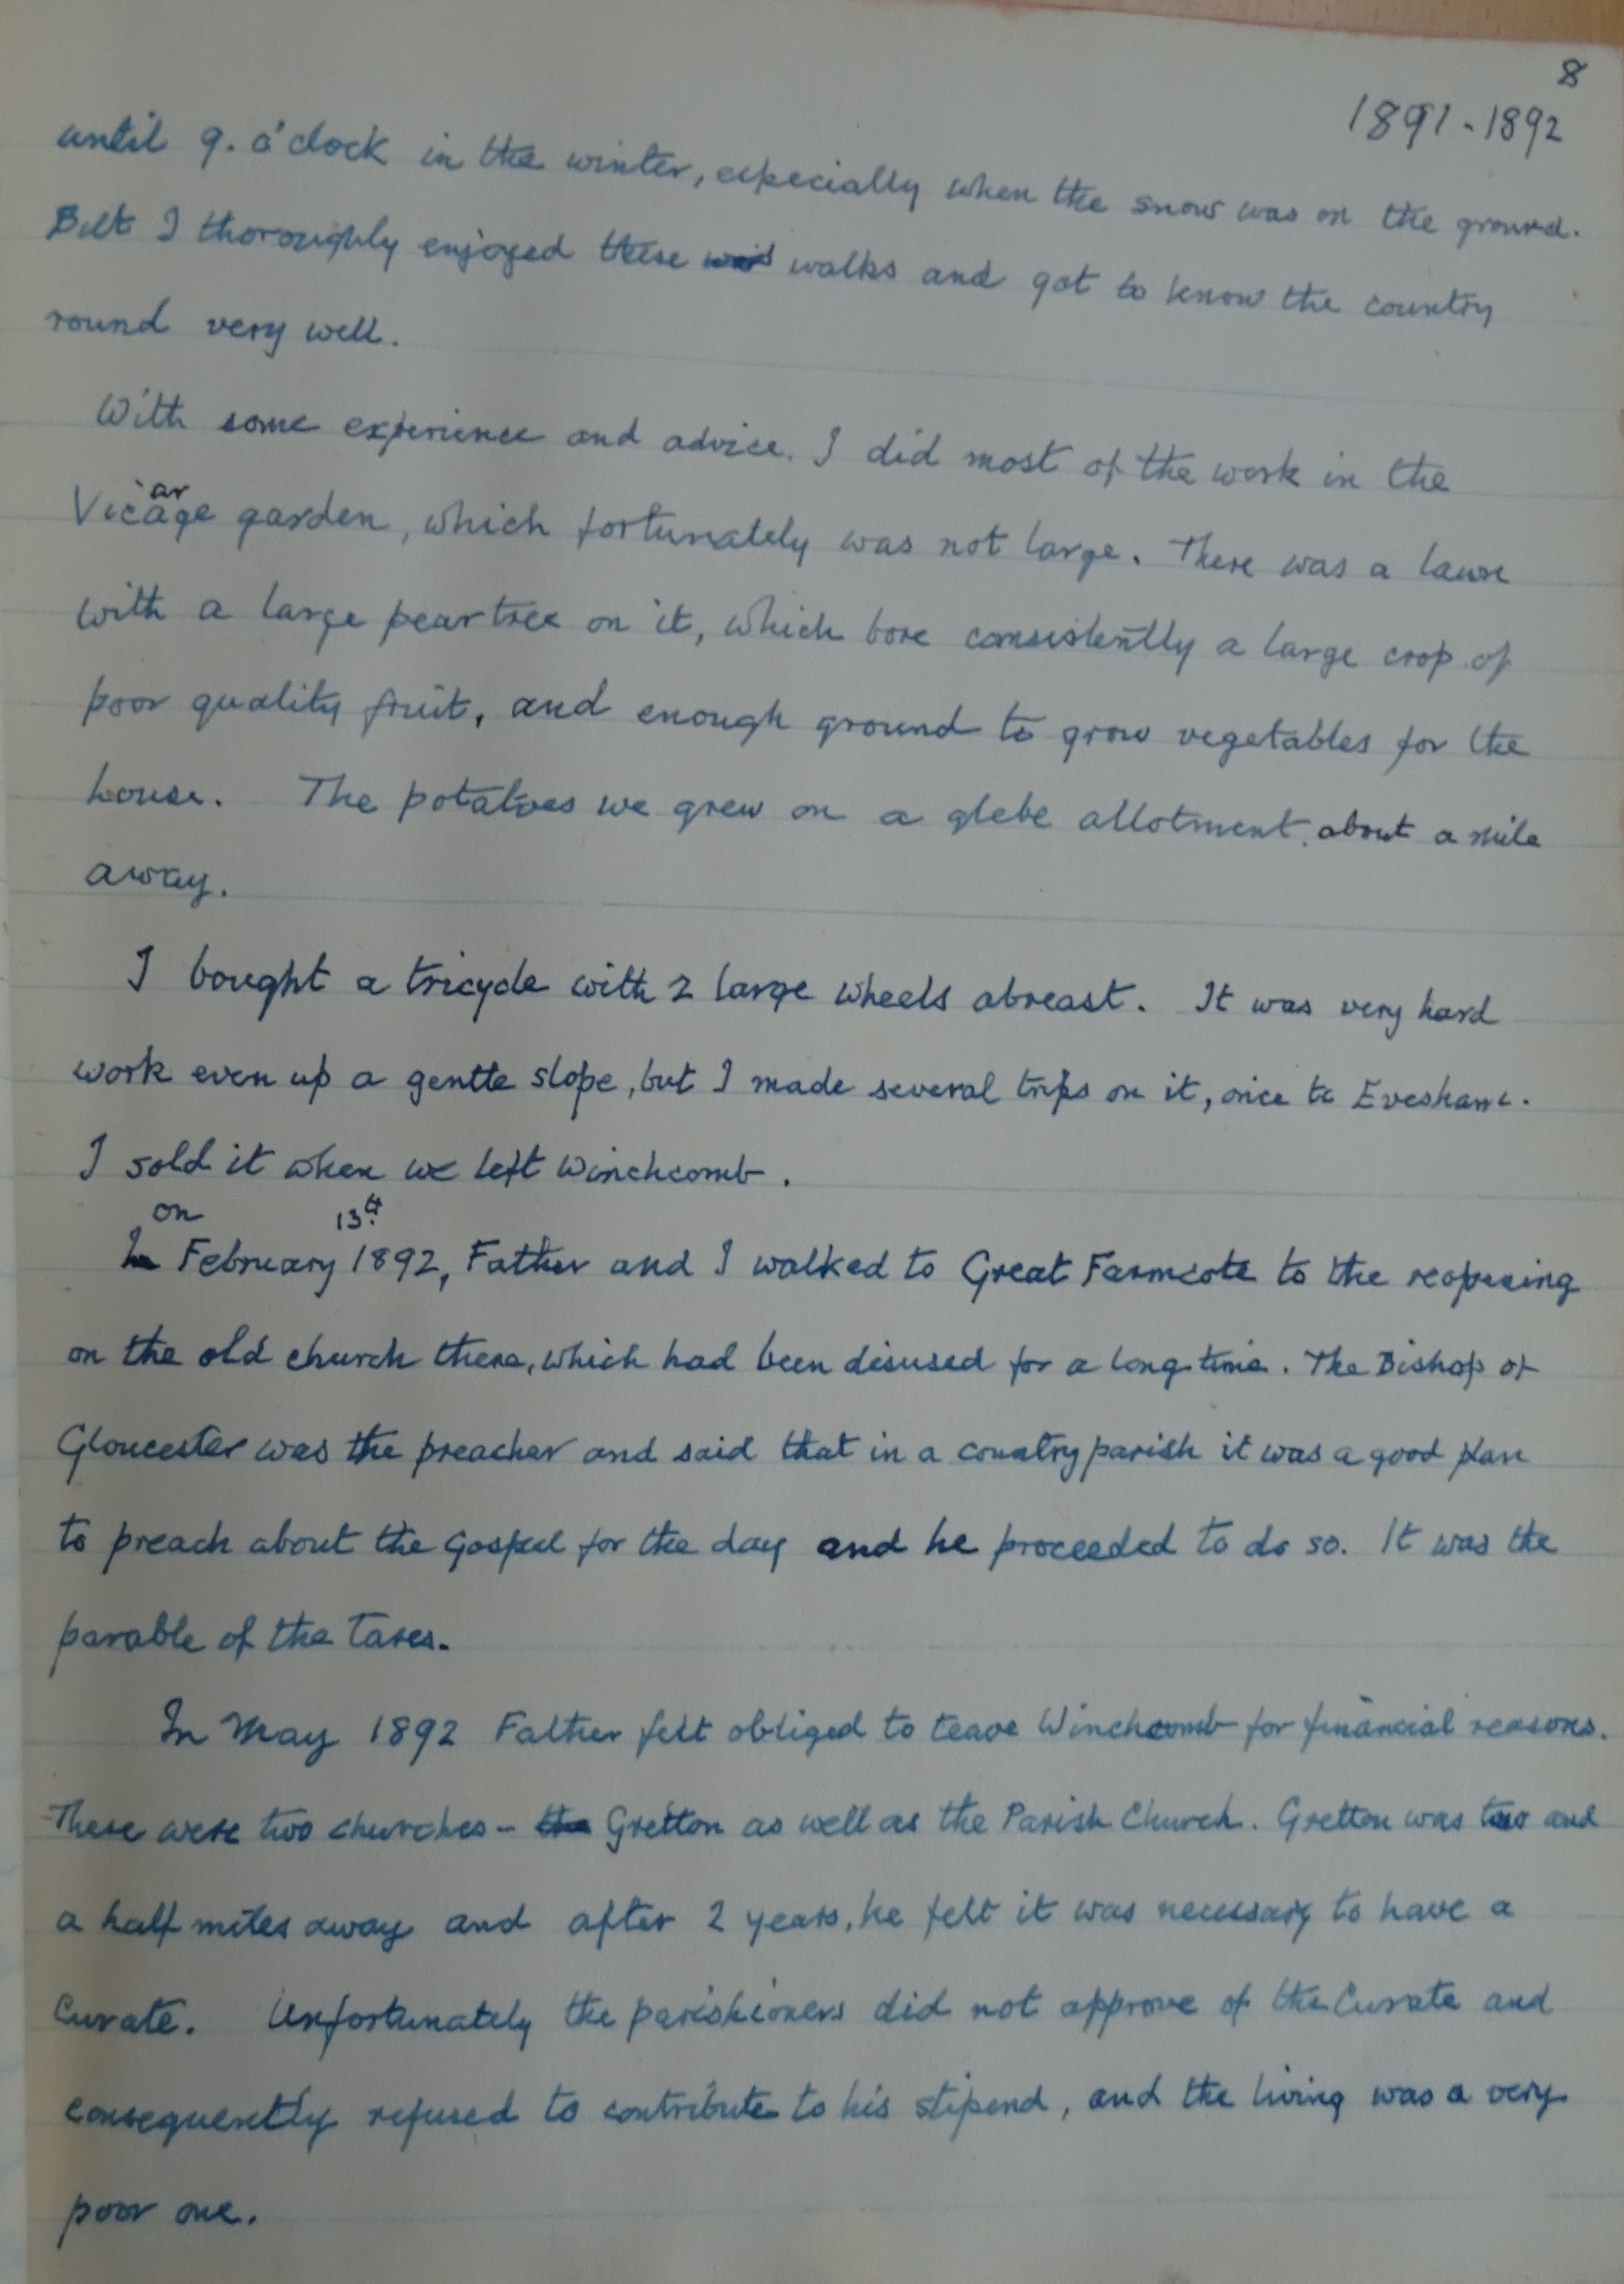 8
1891-1892
until 9. o'clock in the winter, especially when the snow was on the ground.
But I thoroughly enjoyed these walks and got to know the country
round very well.
With some experience and advice. I did most of the work in the
Vicarage garden, which fortunately was not large. There was a lawn
with a large pear tree on it, which bore consistently a large crop of
poor quality fruit, and enough ground to grow vegetables for the
house. The potatoes we grew on a glebe allotment. about a mile
away.
I bought a tricycle with 2 large wheels abreast. It was very hard
work even up a gentle slope, but I made several trips on it, once to Evesham.
I sold it when we left Winchcomb.
on 13th
In February 1892, Father and I walked to Great Farmcote to the reopening
on the old church there, which had been disused for a long time. The Bishop of
Gloucester was the preacher and said that in a country parish it was a good plan
to preach about the Gospel for the day and he proceeded to do so. It was the
parable of the Tares.
In May 1892 Father felt obliged to leave Winchcomb for financial reasons.
There were two churches - the Gretton as well as the Parish Church. Gretton was two and
a half miles away and after 2 years, he felt it was necessary to have a
Curate. Unfortunately the parishioners did not approve of the Curate and
consequently refused to contribute to his stipend, and the living was a very
poor one.